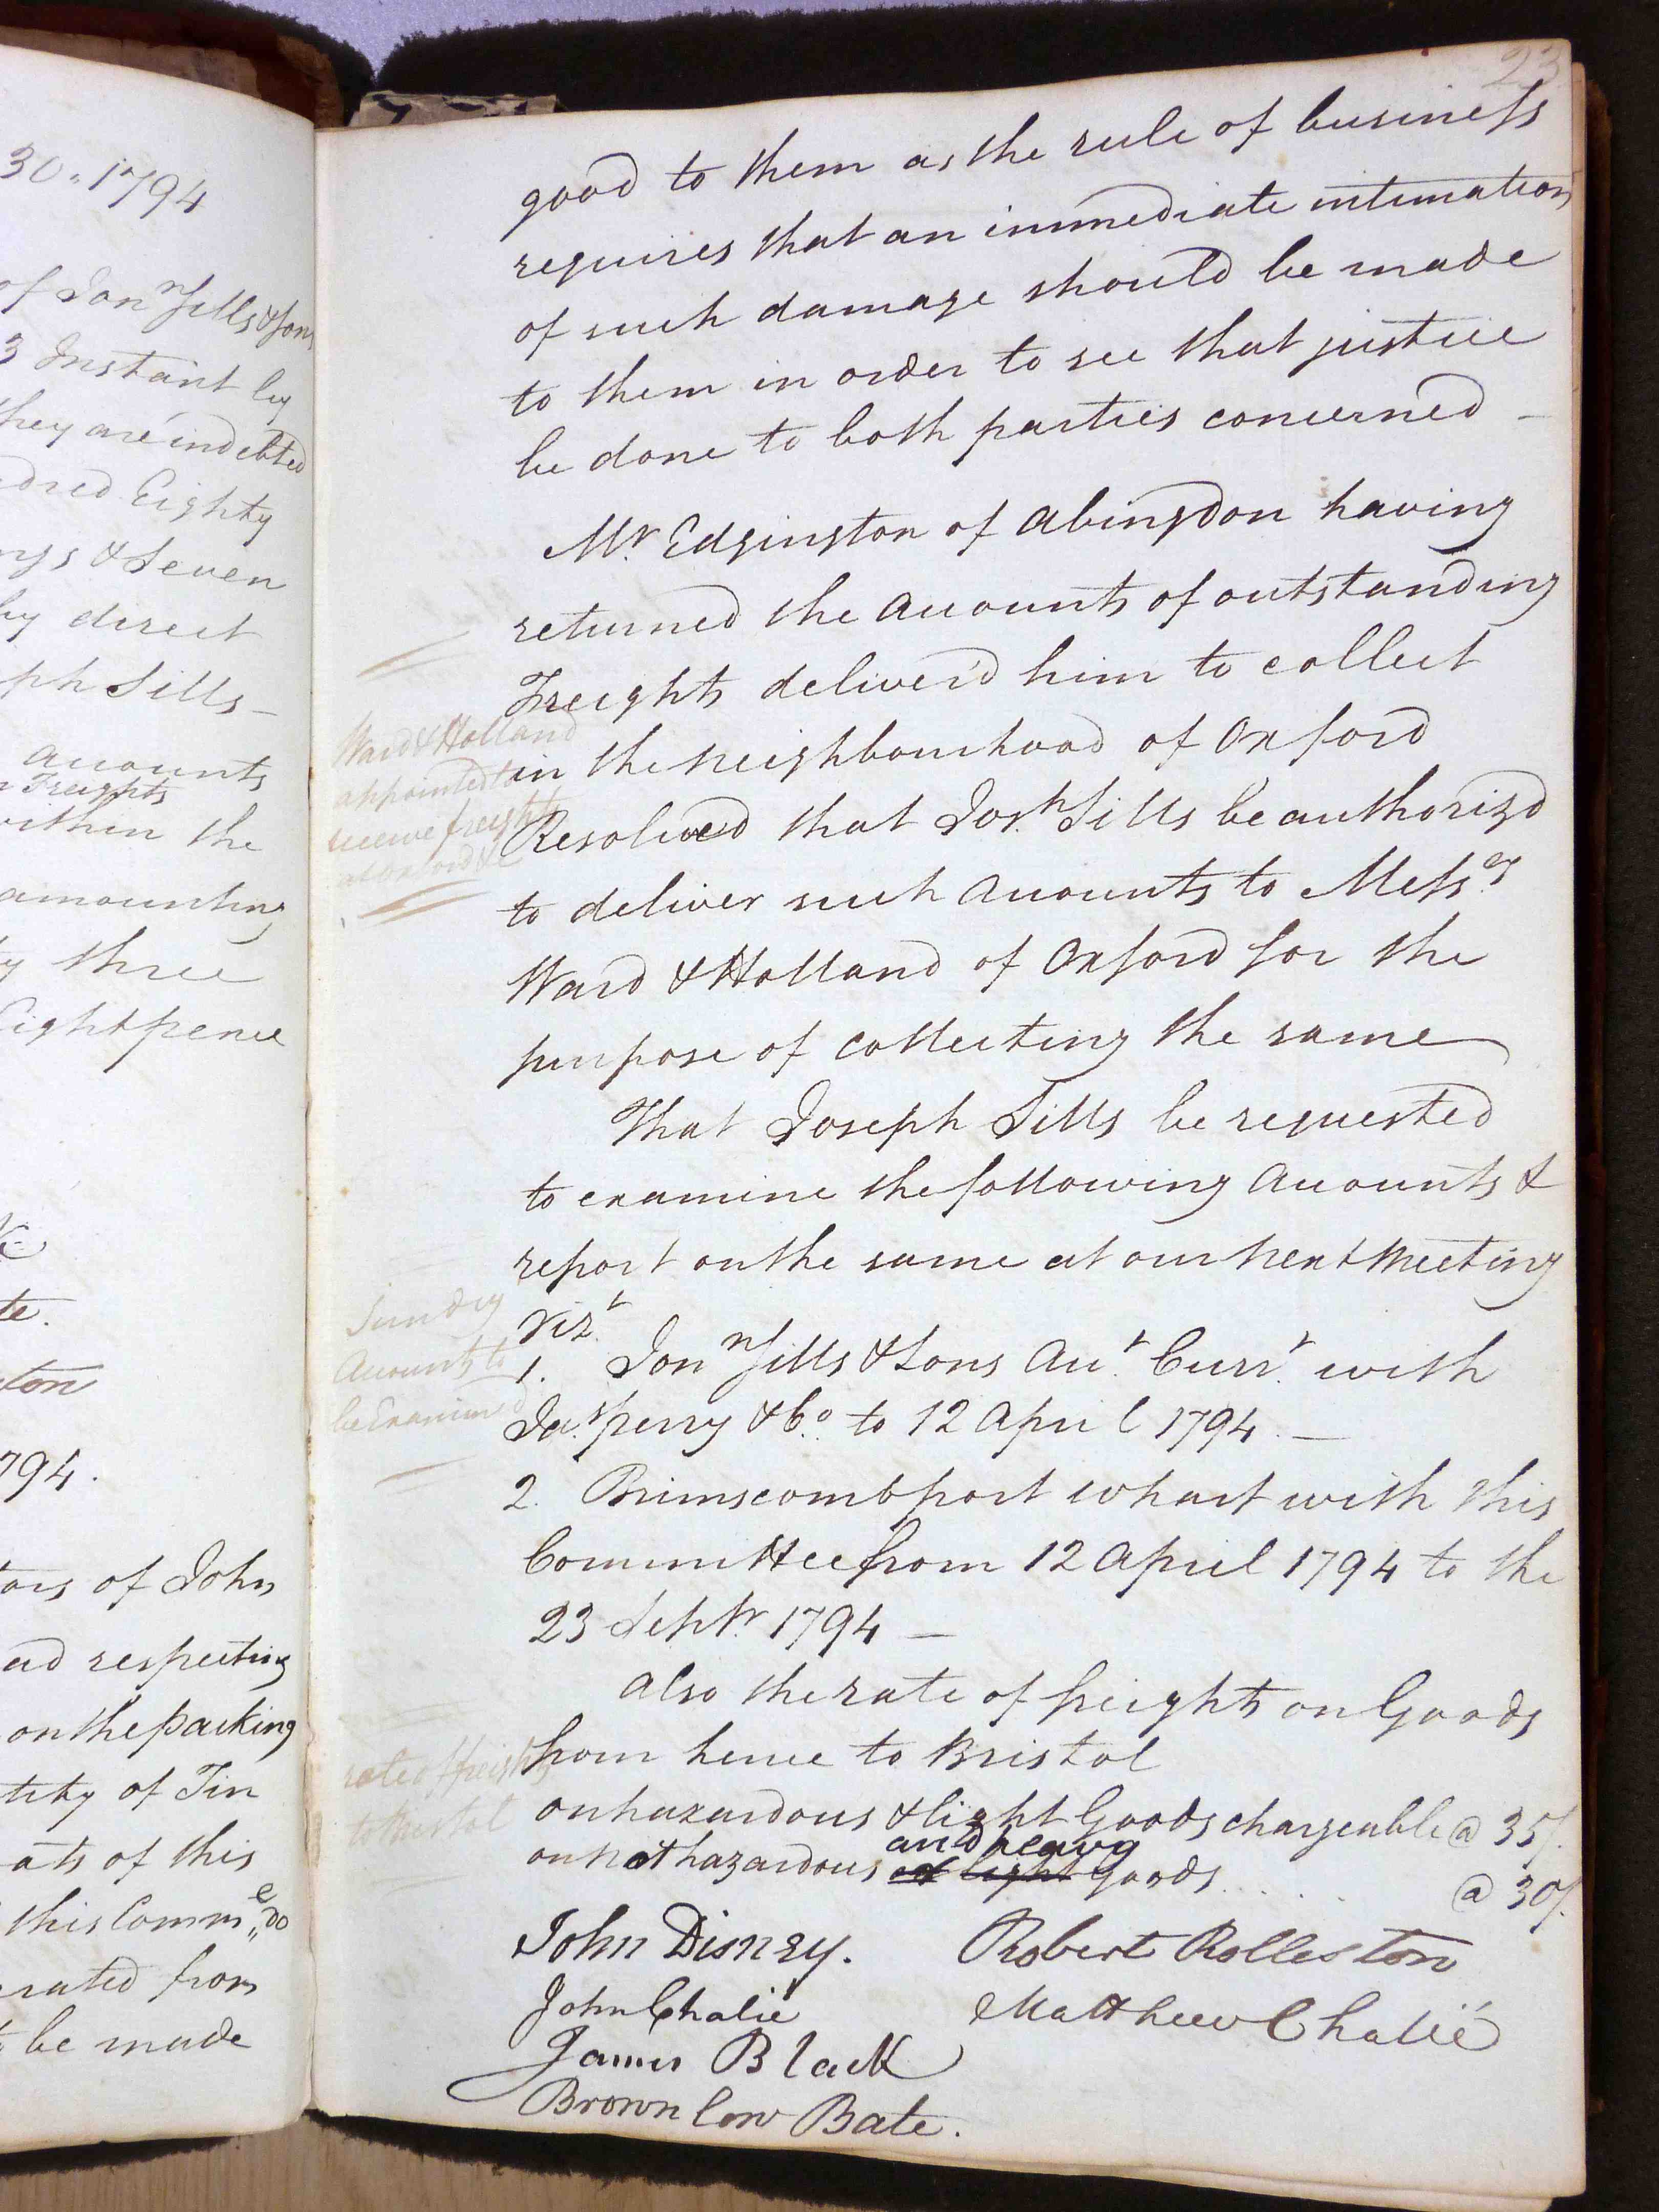 30. 1794
of Jonn Sills & Sons
3 Instant by
they are indebted
dred Eighty
ngs & Seven
by direct
ph Sills –
accounts
Freights
within the
amounting
ty three
Eightpence
te.
ton
794.
tors of John
ad respecting
on the packing
tity of Tin
ats of this
this Comm.ee do
rated from
to be made
23
good to them as the rule of business
requires that an immediate intimation
of such damage should be made
to them in order to see that justice
be done to both parties concerned –
Mr. Edgington of Abingdon having
returned the accounts of outstanding
Freights deliver'd him to collect
in the neighbourhood of Oxford
Resolved that Josh. Sills be authorizd
to deliver such accounts to Messrs.
Ward & Holland of Oxford for the
purpose of collecting the same
That Joseph Sills be requested
to examine the following accounts &
report on the same at our next meeting
vizt.
1. Jonn Sills & Sons Acct. Currt. with
Jas. Perry & Co. to 12 April 1794. –
2. Brimscombport wharf with this
Committee from 12 April 1794 to the
23 Septr. 1794 –
also the rate of freights on Goods
from hence to Bristol
on hazardous & light Goods chargeable @ 35/.
and heavy
on not hazardous or light goods .... @ 30/.
John Disney. Robert Rolleston
John Chalié Matthew Chalié
James Black
Brownlow Bate.
Ward & Holland
appointed to
receive freights
at Oxford &c
Sundry
Accounts to
be Examind
rate of freights
to Bristol